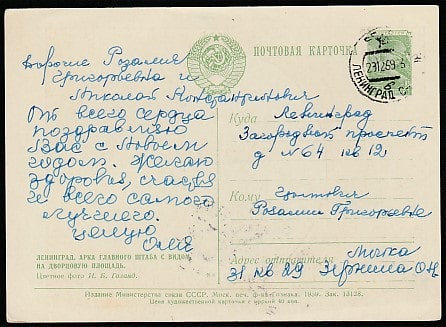 Дорогие Розалия
Григорьевна и
Николай Константинович
От всего сердца
поздравляю
Вас с Новым
годом. Желаю
здоровья, счастья
и всего самого
лучшего.
Целую
Оля
ПОЧТОВАЯ КАРТОЧКА
ЛЕНИНГРАД
Куда Ленинград
Загородный проспект
д N 64 кв 12
Кому
Розалии Григорьевне
Адрес отправителя
31 кв 29
ЛЕНИНГРАД. АРКА ГЛАВНОГО ШТАБА С ВИДОМ
НА ДВОРЦОВУЮ ПЛОЩАДЬ.
Цветное фото И. Б. Голанд.
Издание Министерства связи СССР. Моск. печ. ф-ка Гознака. 1959. Зак. 13128.
Цена художественной карточки с маркой 40 коп.